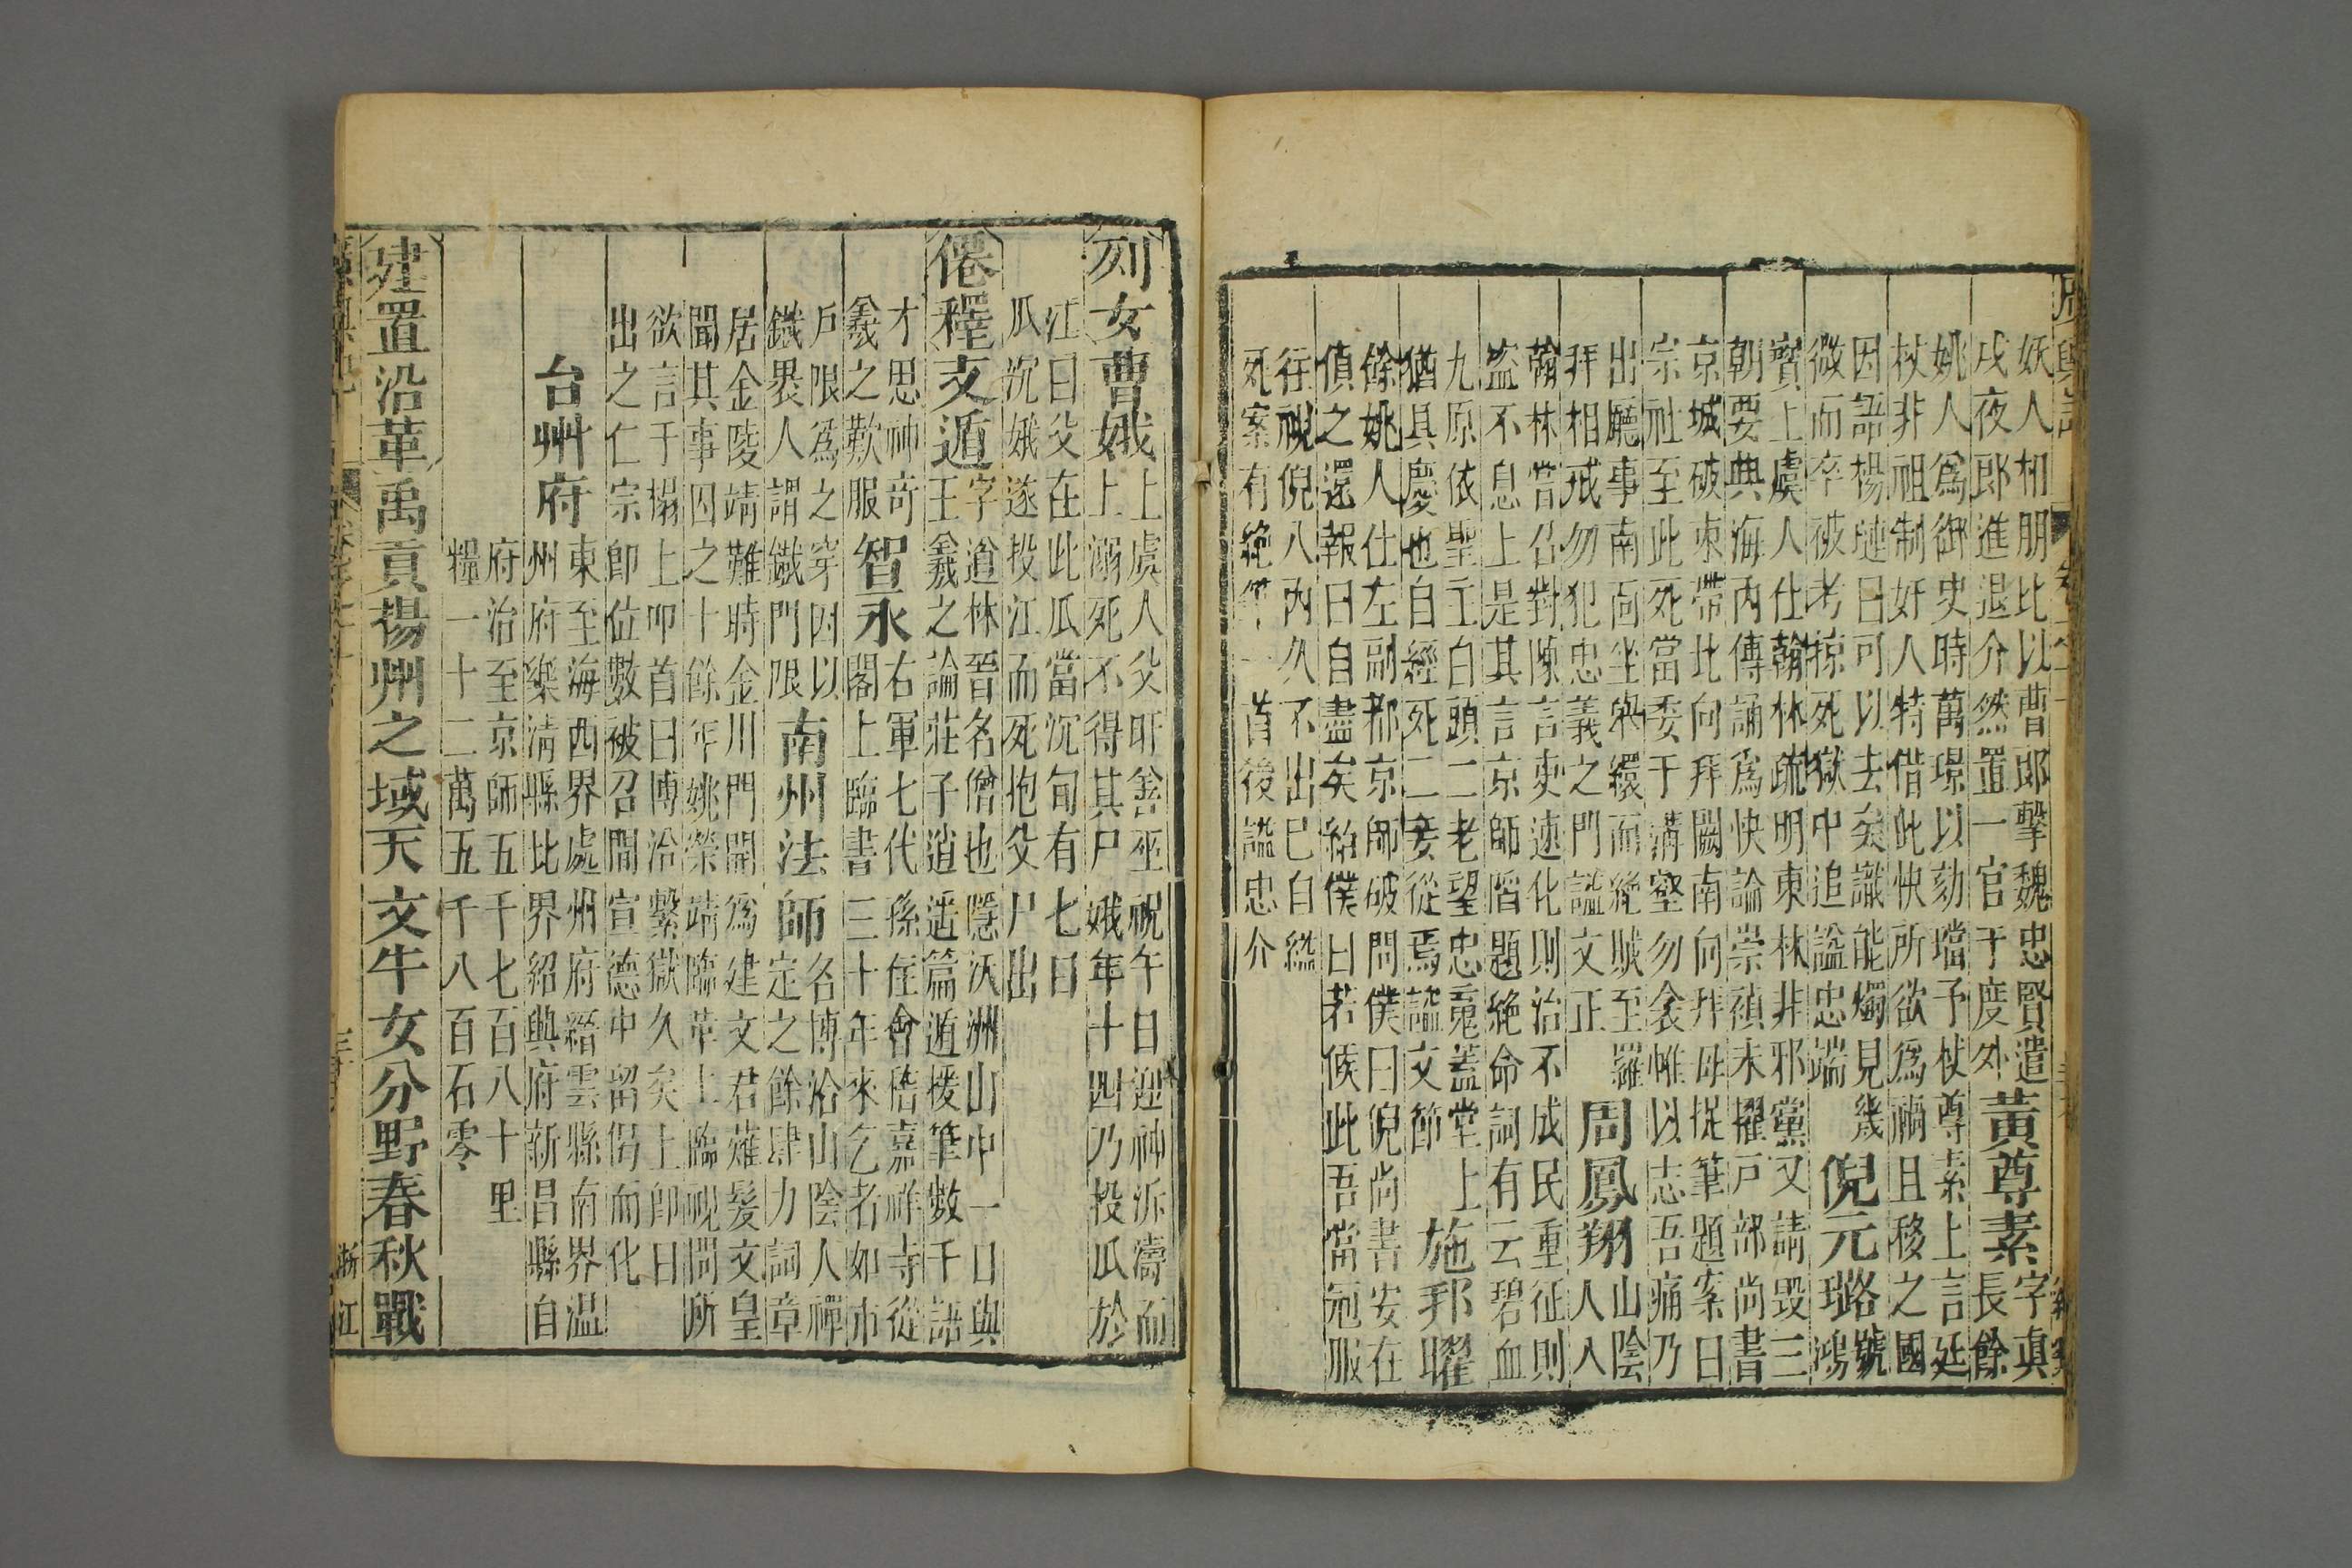 輿記
妖人相朋比以曹郎擊魏忠賢遣
戍夜郎進退介然置一官于度外
黃尊素
字真
長餘
姚人爲御史時萬璟以劾璫予杖尊素上言廷
杖非祖制奸人特借此快所欲爲禍且移之國
因語楊漣曰可以去矣識能燭見幾
微而卒被考掠死獄中追諡忠端
倪元璐
號
鴻
寳上虞人仕翰林疏明東林非邪黨又請毀三
朝要典海內傳誦爲快論崇禎末擢戸部尚書
京城破束帶北向拜闕南向拜母捉筆題案曰
宗社至此死當委于溝壑勿衾帷以志吾痛乃
出廳事南面坐繯而絶賊至羅
拜相戒勿犯忠義之門諡文正
周鳳翔
山陰
人入
翰林嘗召對陳言吏速化則治不成民重征則
盗不息上是其言京師陷題絶命詞有云碧血
九原依聖主白頭二老望忠䰟蓋堂上
猶具慶也自經死二妾從焉諡文節
施邦曜
餘姚人仕左副都京師破問僕曰倪尚書安在
偵之還報曰自盡矣紿僕曰若候此吾當冠服
往視倪入內久不出已自縊
死案有絶筆一首後諡忠介
列女曹娥
上虞人父旴善巫祝午日迎神泝濤而
上溺死不得其尸娥年十四乃投瓜於
江曰父在此瓜當沉旬有七日
瓜沉娥遂投江而死抱父尸出
僊釋支遁
字道林晉名僧也隱沃洲山中一日與
王羲之論莊子逍遙篇遁援筆數千語
才思神竒
羲之歎服
智永
右軍七代孫住會稽嘉祥寺從
閣上臨書三十年來乞者如市
戸限爲之穿因以
鐵裹人謂鐵門限
南州法師
名博洽山陰人禪
定之餘肆力詞章
居金陵靖難時金川門開爲建文君薙髮文皇
聞其事囚之十餘年姚榮靖臨革上臨視問所
欲言于榻上叩首曰博洽繫獄久矣上卽日
出之仁宗卽位數被召問宣德中留偈而化
台州府
東至海西界處州府縉雲縣南界温
州府樂淸縣北界紹興府新昌縣自
府治至京師五千七百八十里
糧一十二萬五千八百石零
建置沿革禹貢揚州之域天文牛女分野春秋戰
浙江